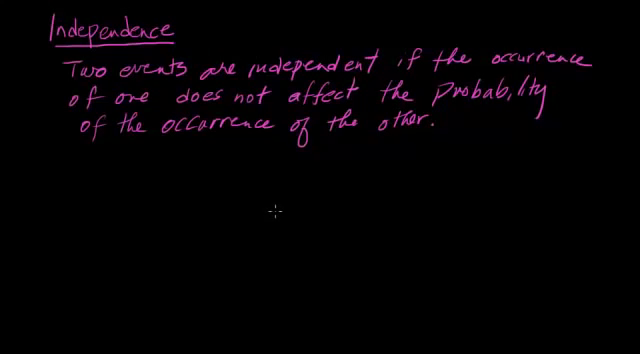 Independence
Two events are independent if the occurrence
of one does not affect the Probability
of the occurrence of the other.